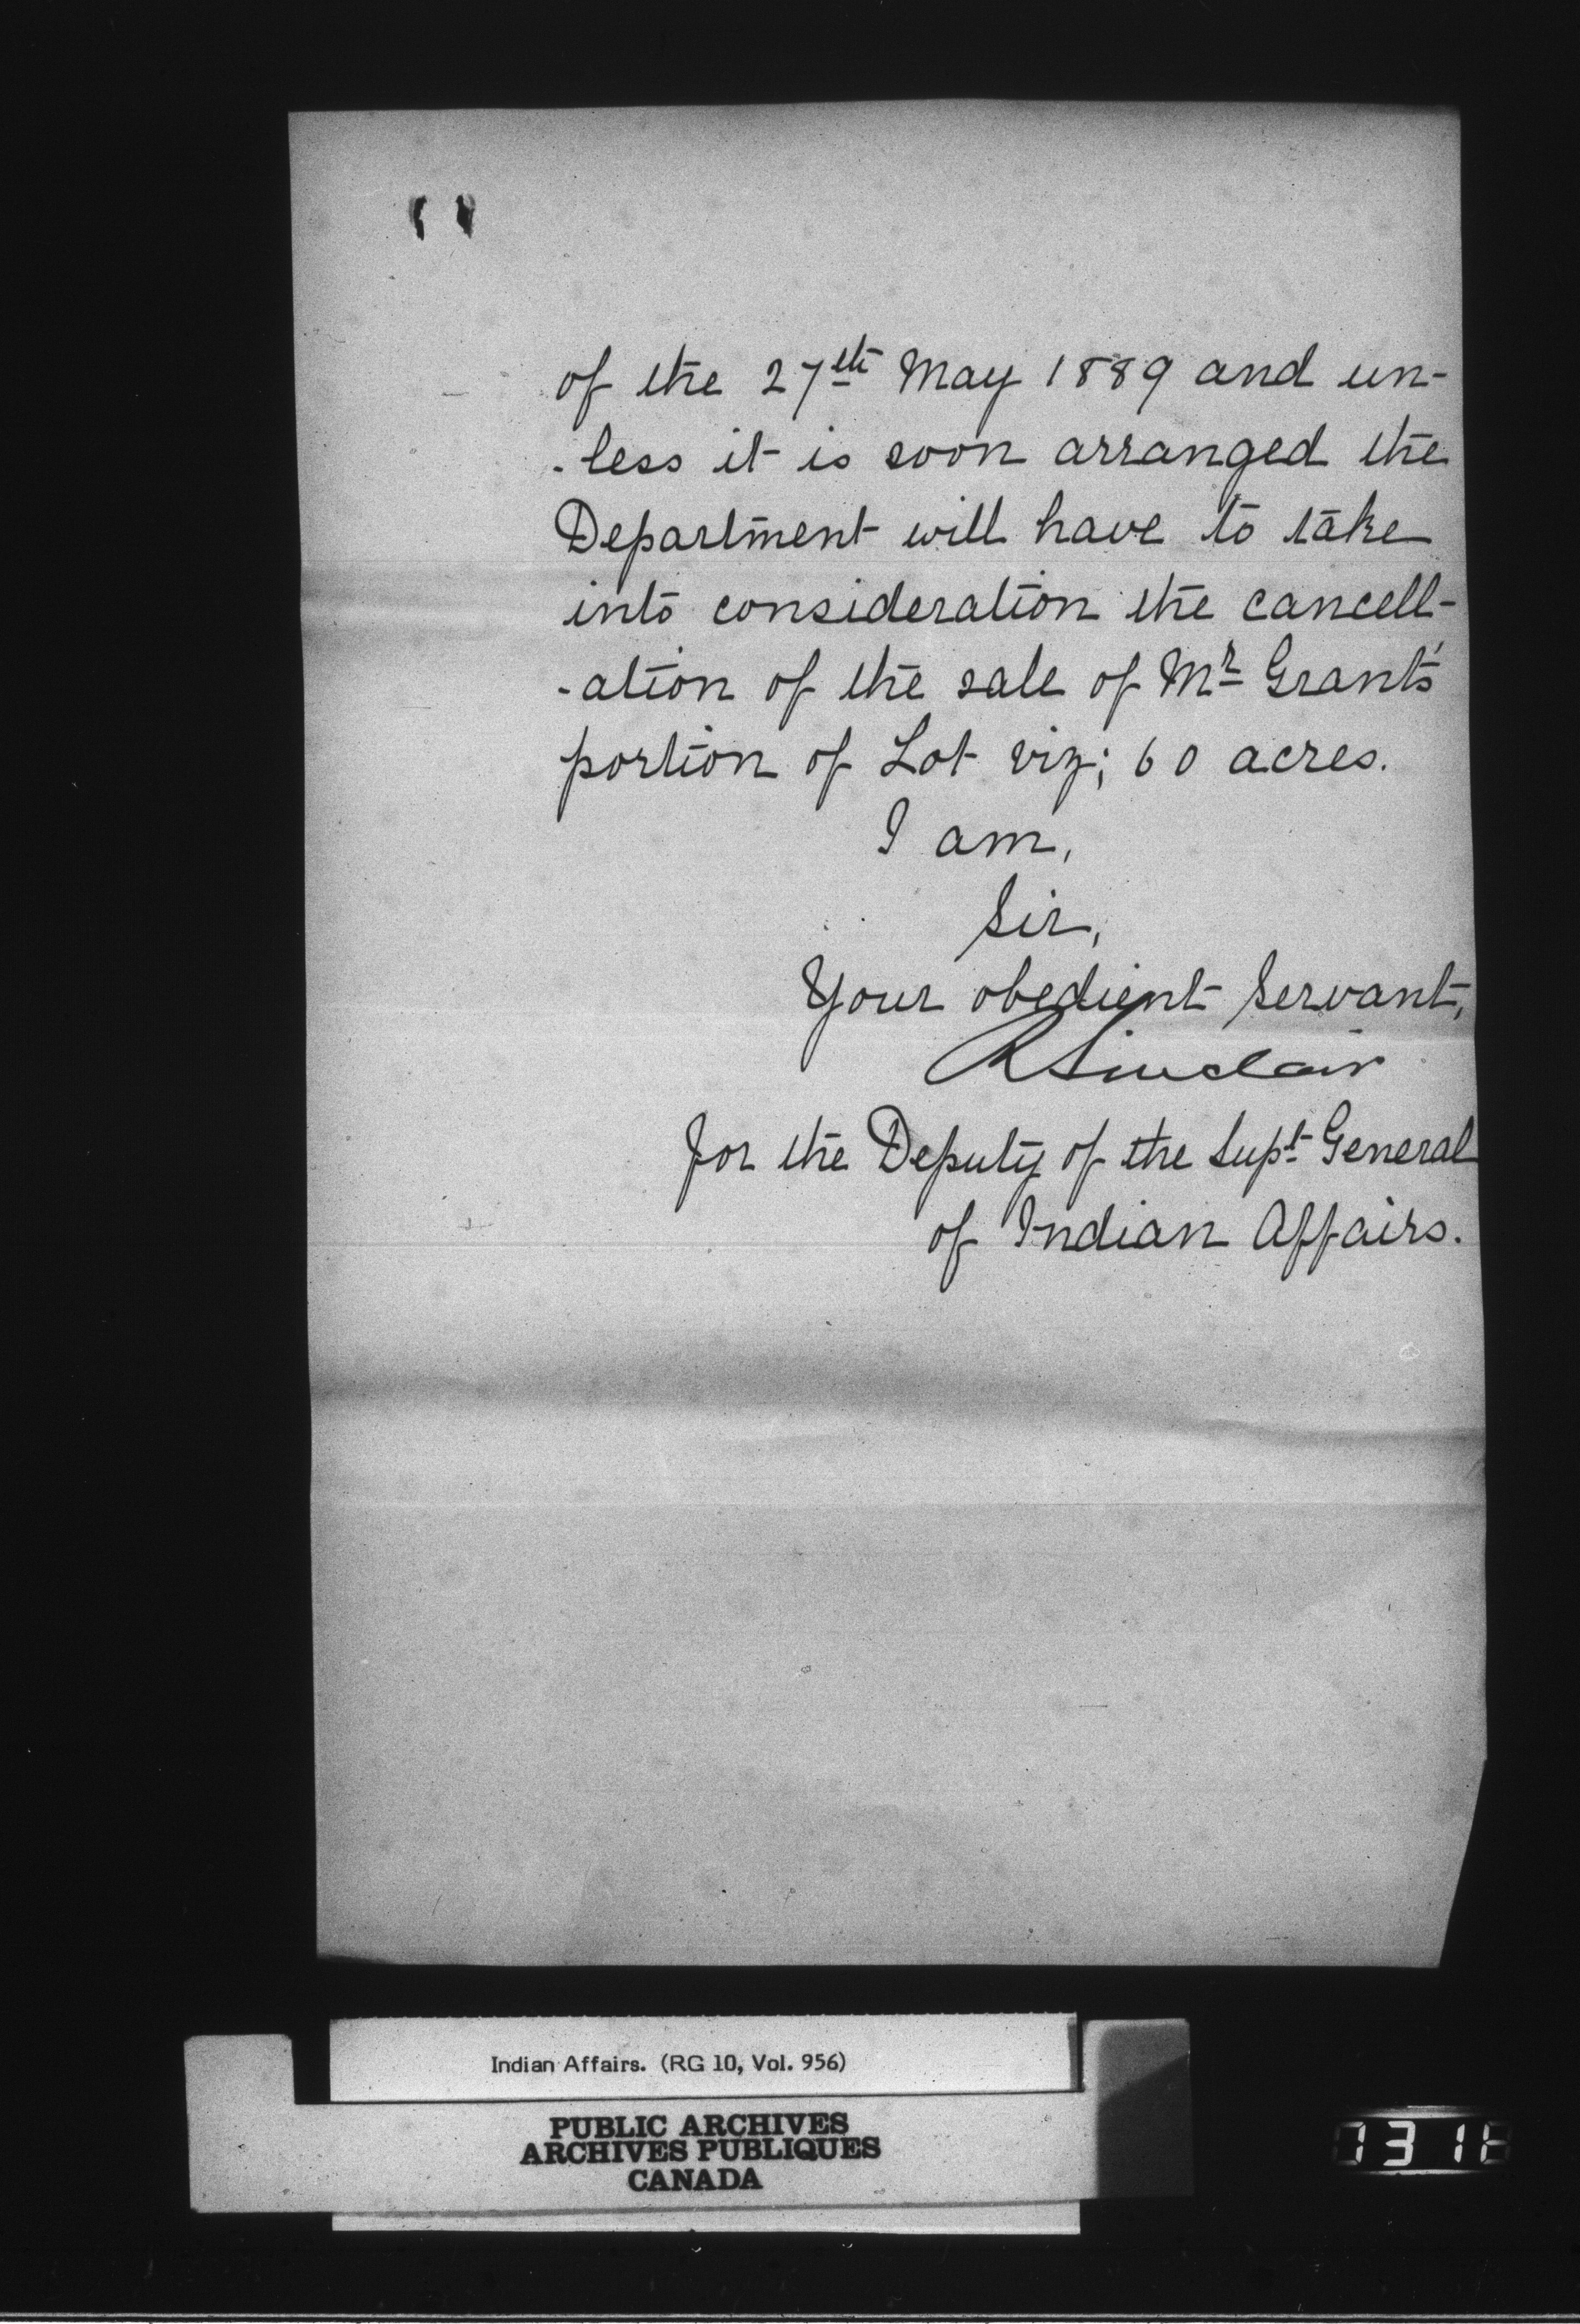 of the 27th May 1889 and un-
-less it is soon arranged the
Department will have to take
into consideration the cancell-
-ation of the sale of Mr Grant's
portion of Lot viz; 60 acres.
I am,
Sir,
Your obedient Servant,
R Sinclair
for the Deputy of the Supt General
of Indian Affairs.
Indian Affairs. (RG 10, Vol. 956)
PUBLIC ARCHIVES
ARCHIVES PUBLIQUES
CANADA